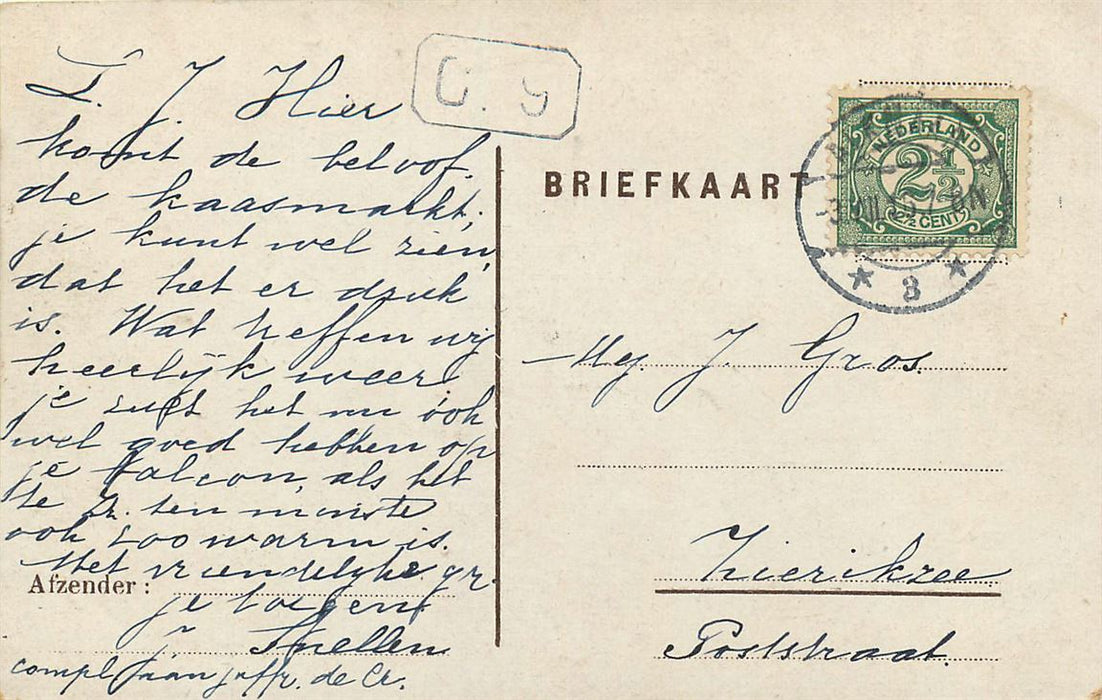 L. J. Hier
komt de beloof.
de kaasmarkt;
je kunt wel zien,
dat het er druk
is. Wat treffen wij
heerlijk weer,
je zult het nu ook
wel goed hebben op
je balcon, als het
te Z. ten minste
ook zoo warm is.
Met vriendelijke gr.
je toegen.
J. Snellen
compl. aan juffr. de Cr.
Afzender:
G. 9
BRIEFKAART
NEDERLAND
2½
2½ CENT
VIII
7-8N
3
Mej J. Gros.
Zierikzee
Poststraat.